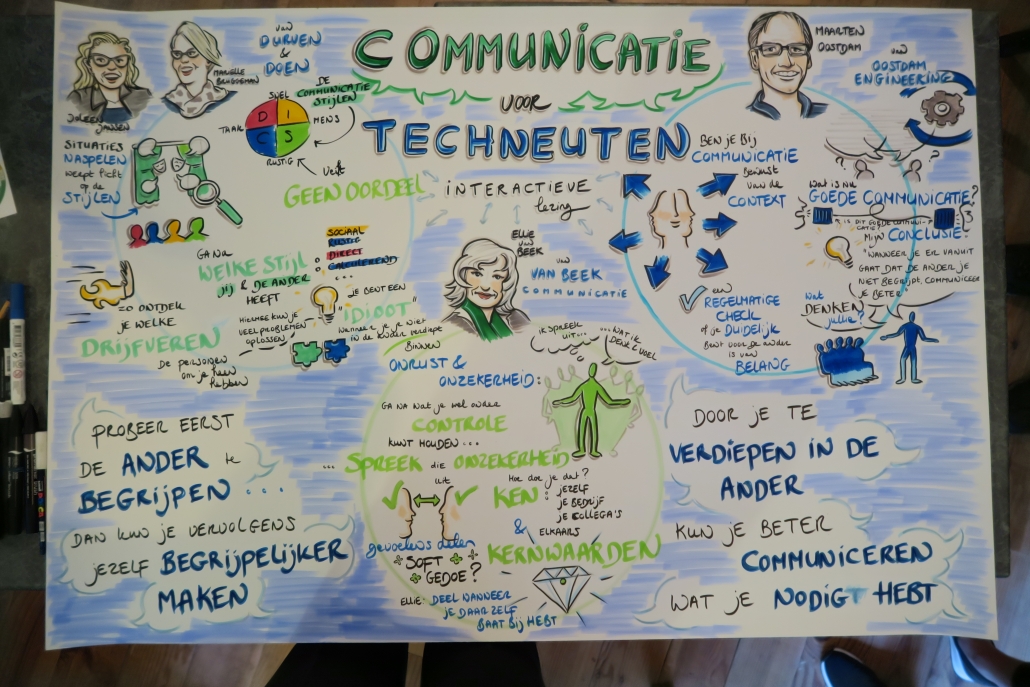 COMMUNICATIE
VOOR
TECHNEUTEN
INTERACTIEVE
lezing
JOLEEN
JANSEN
MARIELLE
BRUGGEMAN
van
DURVEN
&
DOEN
DE
COMMUNICATIE
STIJLEN
SNEL
TAAK
MENS
RUSTIG
D I
C S
SITUATIES
NASPELEN
werpt licht
op de
STIJLEN
GEEN OORDEEL
GA NA
WELKE STIJL
JIJ & DE ANDER
HEEFT
SOCIAAL
RUSTIG
DIRECT
CALCULEREND
...
ONTDEK
je WELKE
DRIJFVEREN
De personen
om je heen
hebben
HIERMEE KUN JE
VEEL PROBLEMEN
OPLOSSEN
"JE BENT EEN
"IDIOOT"
Wanneer je je niet
in de ander verdiept
PROBEER EERST
DE ANDER te
BEGRIJPEN ...
DAN KUN JE VERVOLGENS
JEZELF BEGRIJPELIJKER
MAKEN
ELLIE
van
BEEK
van
VAN BEEK
COMMUNICATIE
BINNEN
ONRUST &
ONZEKERHEID:
IK SPREEK
UIT...
...WAT IK
DENK & VOEL
GA NA WAT je wel onder
CONTROLE
KUNT HOUDEN ...
... SPREEK die ONZEKERHEID
uit
Hoe doe je dat?
KEN:
JEZELF
je BEDRIJF
je COLLEGA'S
&
ELKAARS
KERNWAARDEN
gevoelens delen
SOFT
GEDOE?
ELLIE: DEEL WANNEER
JE DAAR ZELF
BAAT BIJ HEBT
MAARTEN
OOSTDAM
van
OOSTDAM
ENGINEERING
BEN JE BIJ
COMMUNICATIE
Bewust
van de
CONTEXT
?
?
Wat is nu
GOEDE COMMUNICATIE?
IS DIT GOEDE COMMUNI-
CATIE?
Mijn CONCLUSIE:
"WANNEER JE ER VANUIT
GAAT DAT DE ANDER JE
NIET BEGRIJPT, COMMUNICEER
JE BETER"
een
REGELMATIGE
CHECK
of je DUIDELIJK
Bent voor de ander
is van
BELANG
Wat
DENKEN
jullie?
DOOR JE TE
VERDIEPEN IN DE
ANDER
KUN JE BETER
COMMUNICEREN
WAT JE NODIGT HEBT